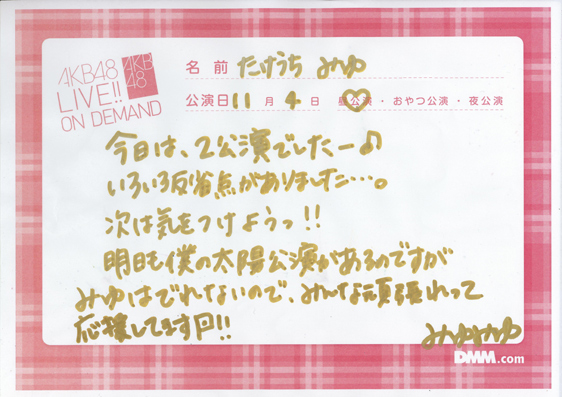 AKB48
LIVE!!
ON DEMAND
AKB
48
名前 たけうち みゆ
公演日 11 月 4 日 昼公演・おやつ公演・夜公演
今日は、2公演でしたー♪
いろいろ反省点がありました…。
次は気をつけようっ!!
明日も僕の太陽公演があるのですが
みゆはでれないので、みんな頑張れって
応援してます!!
みゆみゆ
DMM.com